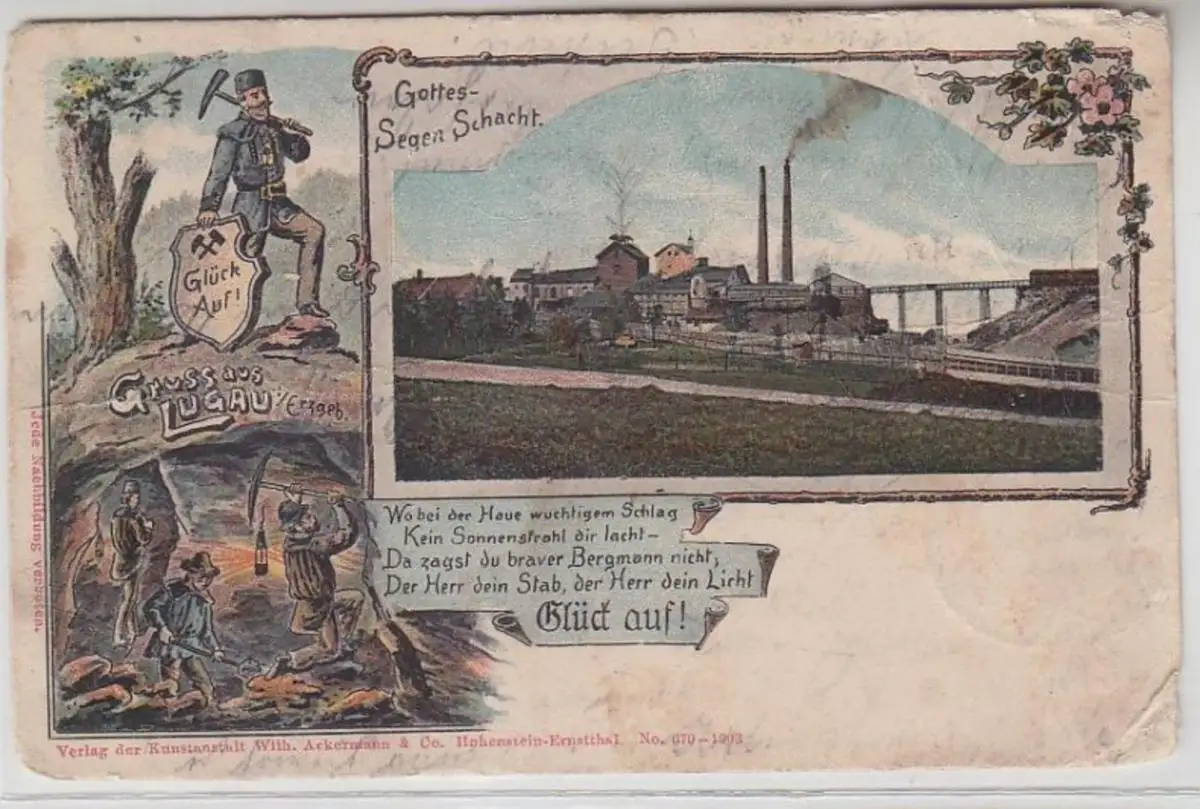 Gottes-
Segen Schacht.
Glück
Auf!
Gruss aus
LUGAU i/Erzgeb.
Wo bei der Haue wuchtigem Schlag
Kein Sonnenstrahl dir lacht—
Da zagst du braver Bergmann nicht,
Der Herr dein Stab, der Herr dein Licht
Glück auf!
Jede Nachbildung verboten.
Verlag der Kunstanstalt Wilh. Ackermann & Co. Hohenstein-Ernstthal. No. 670—1903